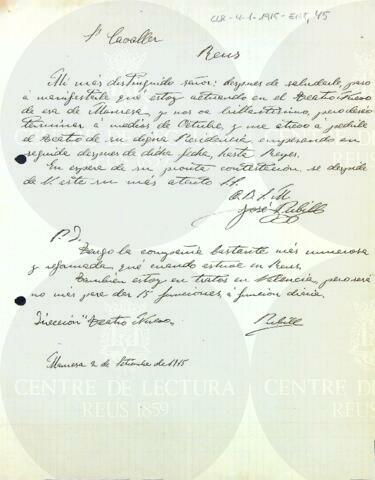 CLR-4-1-1915-Ent, 45
Sr Cavaller
Reus
Mi más distinguido señor: despues de saludarle, paso
á manifestarle qué estoy actuando en el Teatro Nuevo
de esa de Manresa, y nos va brillantisimo, pero deseo
terminar á mediados de Octubre, y me atrevo á pedirle
el Teatro de su digna Presidencia empezando en
seguida despues de dicha fecha, hasta Reyes.
En espera de su pronta contestación, se despide
de V. este su más atento S.S.
Q.B.S.M.
José Rubill
P.D.
Tengo la compañia bastante más numerosa
y reformada, qué cuando estuve en Reus.
Tambien estoy en tratos en Valencia, pero será
no más para dar 15 funciones, á funcion diaria.
Dirección "Teatro Nuevo"
Rubill
Manresa 2 de Setiembre de 1915
CENTRE DE LECTURA
REUS 1859
CENTRE DE LECTURA
REUS 1859